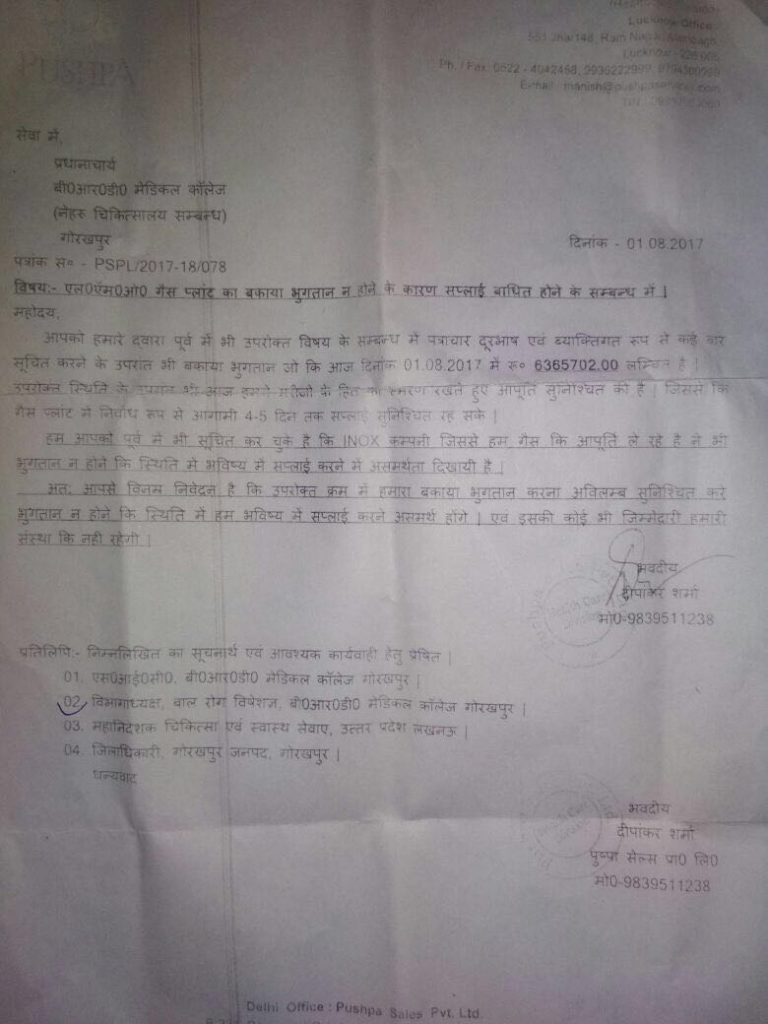 PUSHPA
Lucknow Office :
Ram Nagar, Alambagh,
Lucknow - 226 005
Ph. / Fax. 0522 - 4042468, 9935222999,
E-mail : manish@pushpasales.com
सेवा में,
प्रधानाचार्य
बी0आर0डी0 मेडिकल कॉलेज
(नेहरु चिकित्सालय सम्बन्ध)
गोरखपुर
दिनांक - 01.08.2017
पत्रांक स० - PSPL/2017-18/078
विषय:- एल0एम0ओ0 गैस प्लांट का बकाया भुगतान न होने के कारण सप्लाई बाधित होने के सम्बन्ध में |
महोदय,
आपको हमारे दवारा पूर्व में भी उपरोक्त विषय के सम्बन्ध में पत्राचार दूरभाष एवं ब्याक्तिगत रूप से कई बार
सूचित करने के उपरांत भी बकाया भुगतान जो कि आज दिनांक 01.08.2017 में रु० 6365702.00 लम्बित है |
उपरोक्त स्थिति के उपरांत भी आज हमने मरीजो के हित का स्मरण रखते हुए आपूर्ति सुनिश्चित की है | जिससे कि
गैस प्लांट में निर्बाध रूप से आगामी 4-5 दिन तक सप्लाई सुनिश्चित रह सके |
हम आपको पूर्व में भी सूचित कर चुके है कि INOX कम्पनी जिससे हम गैस कि आपूर्ति ले रहे है ने भी
भुगतान न होने कि स्थिति में भविष्य में सप्लाई करने में असमर्थता दिखायी है |
अत: आपसे विनम्र निवेदन है कि उपरोक्त क्रम में हमारा बकाया भुगतान करना अविलम्ब सुनिश्चित करे
भुगतान न होने कि स्थिति में हम भविष्य में सप्लाई करने असमर्थ होंगे | एवं इसकी कोई भी जिम्मेदारी हमारी
संस्था कि नही रहेगी |
भवदीय
दीपांकर शर्मा
मो0-9839511238
प्रतिलिपि:- निम्नलिखित का सूचनार्थ एवं आवश्यक कार्यवाही हेतु प्रेषित |
01. एस0आई0सी0, बी0आर0डी0 मेडिकल कॉलेज गोरखपुर |
02. विभागाध्यक्ष, बाल रोग विषेशज्ञ, बी0आर0डी0 मेडिकल कॉलेज गोरखपुर |
03. महानिदेशक चिकित्सा एवं स्वास्थ सेवाए, उत्तर प्रदेश लखनऊ |
04. जिलाधिकारी, गोरखपुर जनपद, गोरखपुर |
धन्यवाद
भवदीय
दीपांकर शर्मा
पुष्पा सेल्स प्रा0 लि0
मो0-9839511238
Delhi Office : Pushpa Sales Pvt. Ltd.